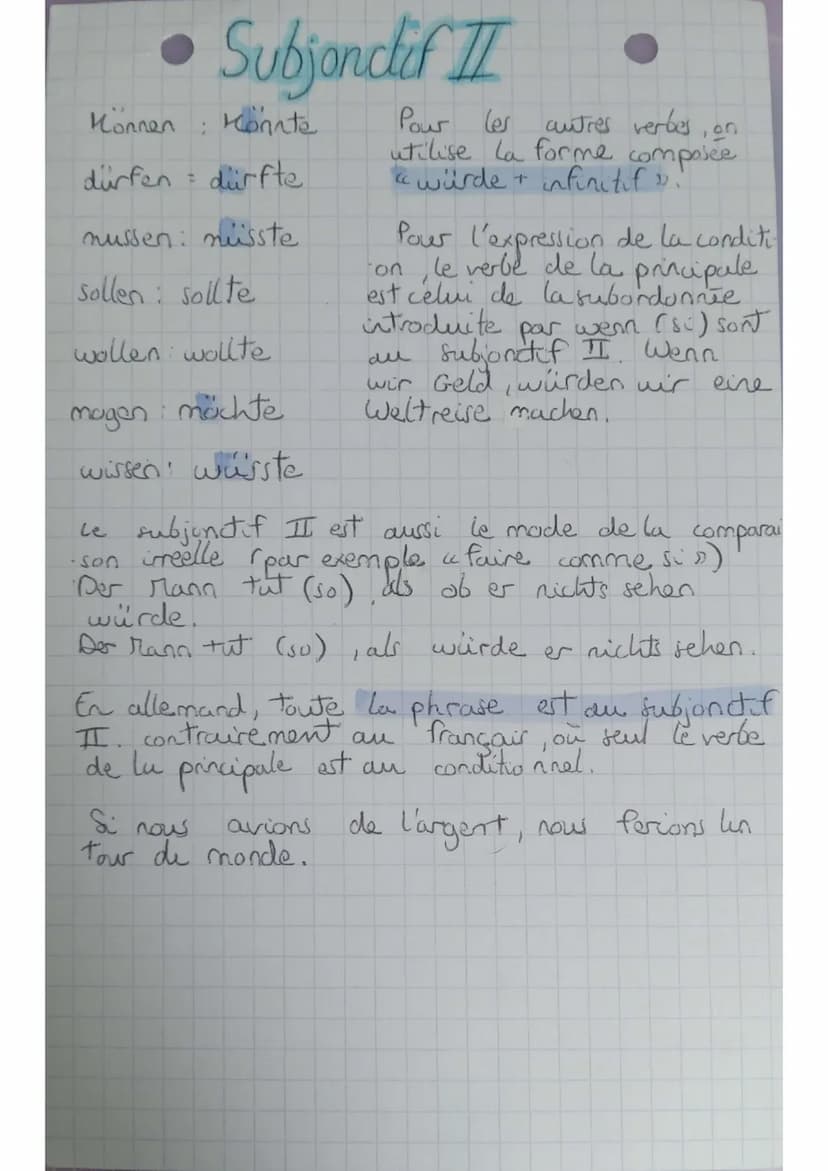 Subjonctif II
Können : Könnte
dürfen = dürfte
mussen : müsste
sollen : sollte
wollen : wollte
mogen : möchte
wissen : wüsste
Pour les autres verbes, on
utilise la forme composée
« würde + infinitif ».
Pour l'expression de la conditi-
on, le verbe de la principale
est celui de la subordonnée
introduite par wenn (si) sont
au subjonctif II. Wenn
wir Geld, würden wir eine
Weltreise machen.
Le subjonctif II est aussi le mode de la comparai
son irréelle (par exemple « faire comme si »)
Der Mann tut (so), als ob er nichts sehen
würde.
Der Mann tut (so), als würde er nichts sehen.
En allemand, toute la phrase est au subjonctif
II. contrairement au français, où seul le verbe
de la principale est au conditionnel.
Si nous avions de l'argent, nous ferions un
tour du monde.